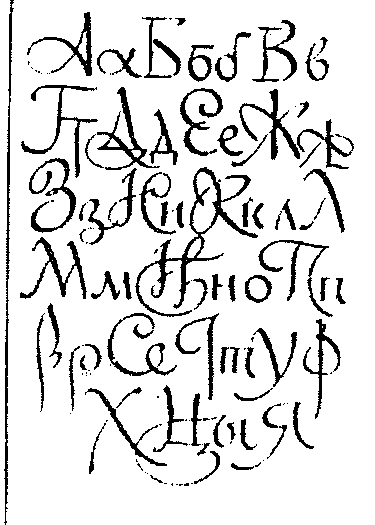 АаБббВв
ГгДдЕеЖж
ЗзИиКклЛ
МмНнноПп
РрСеТтуф
ХЦыЯ